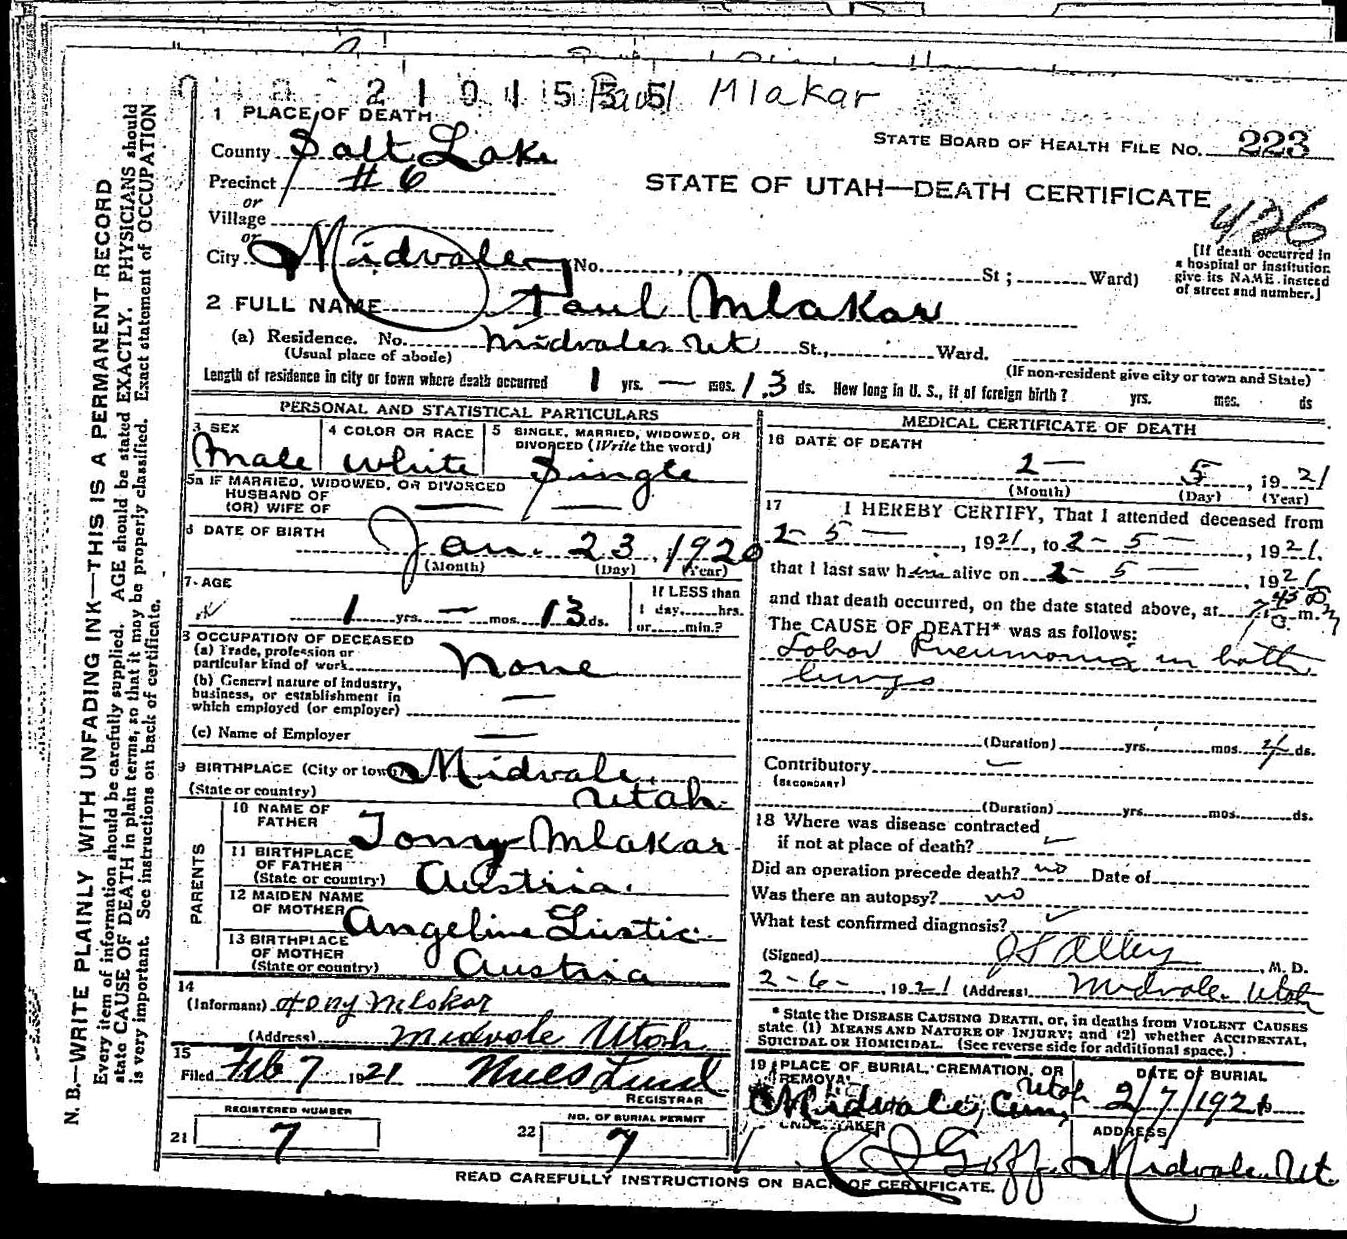 2 1 0 1 5 5 5 Paul Mlakar
1 PLACE OF DEATH
STATE BOARD OF HEALTH FILE NO. 223
County Salt Lake
Precinct #6
STATE OF UTAH—DEATH CERTIFICATE
426
or
Village
or
City Midvale No. , St ; Ward)
[If death occurred in
a hospital or institution
give its NAME instead
of street and number.]
2 FULL NAME Paul Mlakar
(a) Residence. No. Midvale Ut St., Ward.
(Usual place of abode)
(If non-resident give city or town and State)
Length of residence in city or town where death occurred 1 yrs. — mos. 13 ds. How long in U. S., if of foreign birth? yrs. mos. ds
PERSONAL AND STATISTICAL PARTICULARS
3 SEX
Male
4 COLOR OR RACE
White
5 SINGLE, MARRIED, WIDOWED, OR
DIVORCED (Write the word)
Single
5a IF MARRIED, WIDOWED, OR DIVORCED
HUSBAND OF
(OR) WIFE OF — —
6 DATE OF BIRTH
Jan. 23, 1920
(Month) (Day) (Year)
7 AGE
1 yrs. — mos. 13 ds.
If LESS than
1 day, hrs.
or min.?
8 OCCUPATION OF DECEASED
(a) Trade, profession or
particular kind of work None
(b) General nature of industry,
business, or establishment in
which employed (or employer) —
(c) Name of Employer —
9 BIRTHPLACE (City or town) Midvale
(State or country) Utah
PARENTS
10 NAME OF
FATHER Tony Mlakar
11 BIRTHPLACE
OF FATHER
(State or country) Austria
12 MAIDEN NAME
OF MOTHER Angeline Lustic
13 BIRTHPLACE
OF MOTHER
(State or country) Austria
14
(Informant) Tony Mlakar
(Address) Midvale Utah
15
Filed Feb 7 1921 Lund
REGISTRAR
REGISTERED NUMBER
21 7
NO. OF BURIAL PERMIT
22 7
MEDICAL CERTIFICATE OF DEATH
16 DATE OF DEATH
2 — 5, 1921
(Month) (Day) (Year)
17 I HEREBY CERTIFY, That I attended deceased from
2-5 —, 1921, to 2-5 —, 1921.
that I last saw him alive on 2-5 —, 1921
and that death occurred, on the date stated above, at m.
The CAUSE OF DEATH* was as follows:
Lobar Pneumonia in both
lungs
(Duration) yrs. mos. ds.
Contributory —
(SECONDARY)
(Duration) yrs. mos. ds.
18 Where was disease contracted
if not at place of death?
Did an operation precede death? no Date of
Was there an autopsy? no
What test confirmed diagnosis?
(Signed) Alley, M. D.
2-6-, 1921 (Address) Midvale. Utah
* State the DISEASE CAUSING DEATH, or, in deaths from VIOLENT CAUSES
state (1) MEANS AND NATURE OF INJURY; and (2) whether ACCIDENTAL,
SUICIDAL OR HOMICIDAL. (See reverse side for additional space.)
19 PLACE OF BURIAL, CREMATION, OR
REMOVAL
Midvale, Cem, Utah
DATE OF BURIAL
2/7/1921
UNDERTAKER
Goff
ADDRESS
Midvale Ut.
READ CAREFULLY INSTRUCTIONS ON BACK OF CERTIFICATE.
N. B.—WRITE PLAINLY WITH UNFADING INK—THIS IS A PERMANENT RECORD
Every item of information should be carefully supplied. AGE should be stated EXACTLY. PHYSICIANS should
state CAUSE OF DEATH in plain terms, so that it may be properly classified. Exact statement of OCCUPATION
is very important. See instructions on back of certificate.